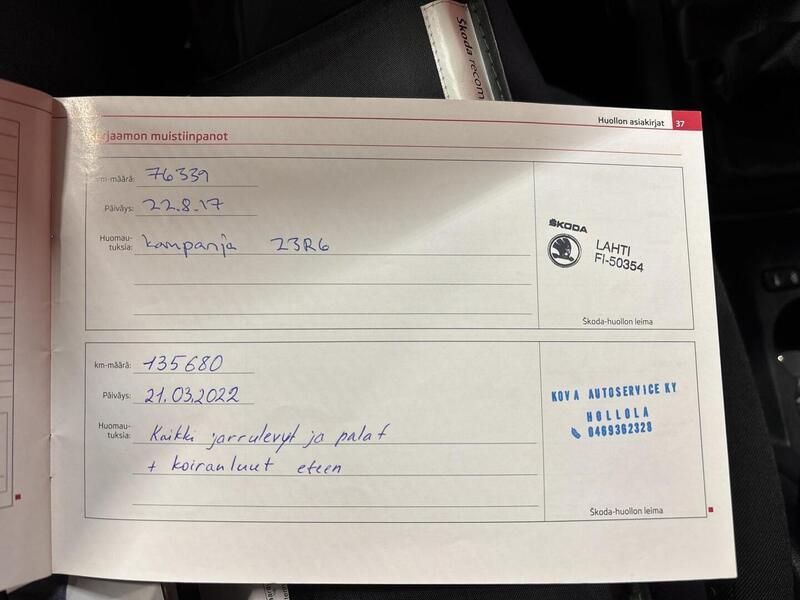 Škoda recom
Huollon asiakirjat 37
rjaamon muistiinpanot
km-määrä: 76339
Päiväys: 22.8.17
Huomau-
tuksia: kampanja 23R6
ŠKODA
LAHTI
FI-50354
Škoda-huollon leima
km-määrä: 135680
Päiväys: 21.03.2022
Huomau-
tuksia: Kaikki jarrulevyt ja palat
+ koiranluut eteen
KOVA AUTOSERVICE KY
HOLLOLA
0469362328
Škoda-huollon leima